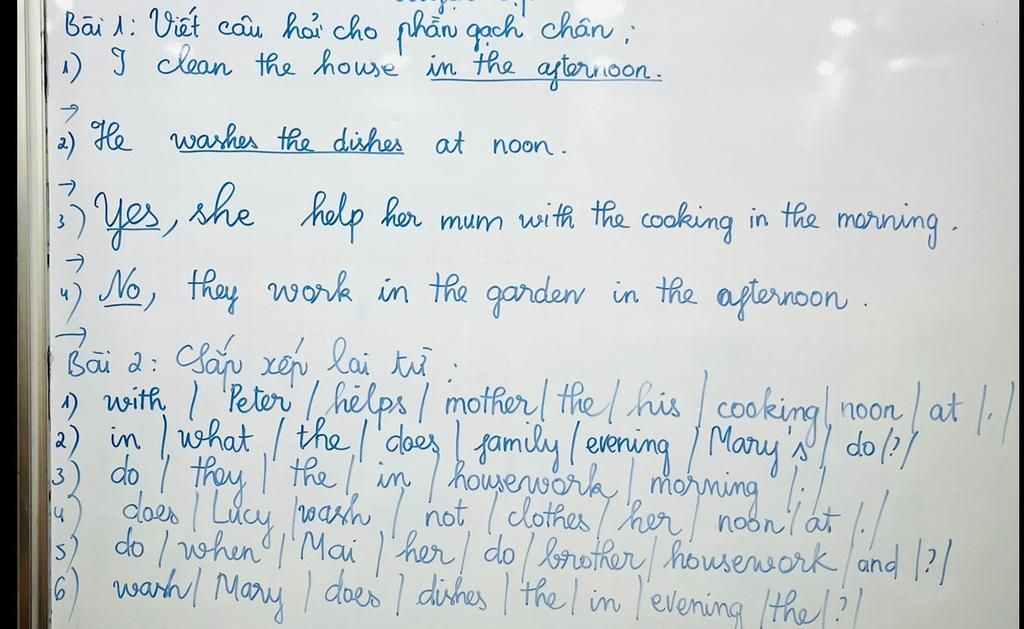 Bài 1: Viết câu hỏi cho phần gạch chân:
1) I clean the house in the afternoon.
→
2) He washes the dishes at noon.
→
3) Yes, she help her mum with the cooking in the morning.
→
4) No, they work in the garden in the afternoon.
→
Bài 2: Sắp xếp lại từ:
1) with / Peter / helps / mother / the / his / cooking / noon / at / . /
2) in / what / the / does / family / evening / Mary's / do / ? /
3) do / they / the / in / housework / morning / . /
4) does / Lucy / wash / not / clothes / her / noon / at / . /
5) do / when / Mai / her / do / brother / housework / and / ? /
6) wash / Mary / does / dishes / the / in / evening / the / ? /